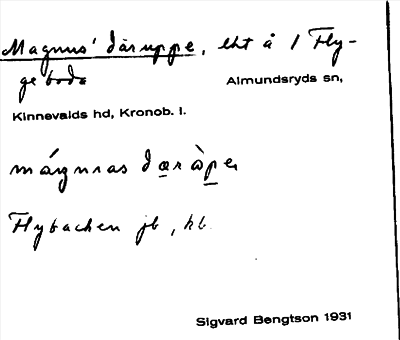 Magnus' däruppe, lht å 1 Fly-
ge boda Almundsryds sn,
Kinnevalds hd, Kronob. l.
mágnras dær àpe,
Flybacken jb, hb.
Sigvard Bengtson 1931